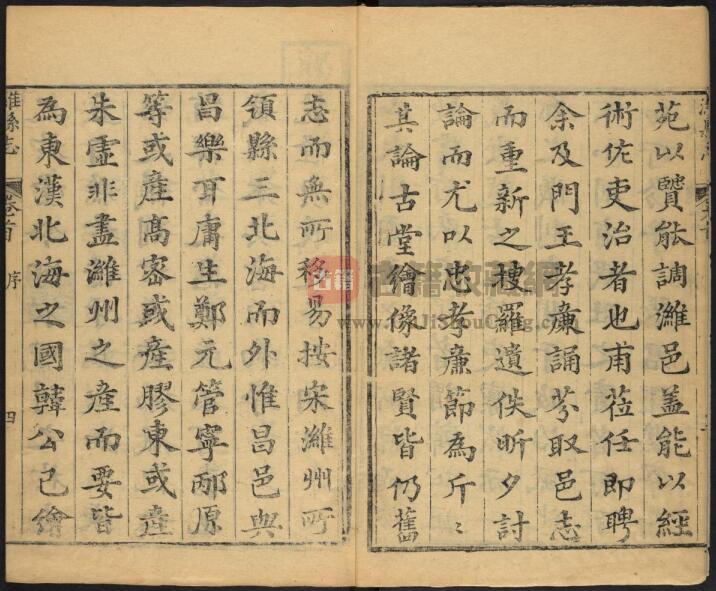 苑以賢能調濰邑蓋能以經
術佐吏治者也甫莅任即聘
余及門王孝廉誦芬取邑志
而重新之搜羅遺佚昕夕討
論而尤以忠孝廉節為斤〻
其論古堂繪像諸賢皆仍舊
志而無所移易按宋濰州所
領縣三北海而外惟昌邑與
昌樂耳庸生鄭元管寧邴原
等或產高密或產膠東或產
朱虛非盡濰州之產而要皆
為東漢北海之國韓公已繪
濰縣志
卷首
序
四
古籍收藏網